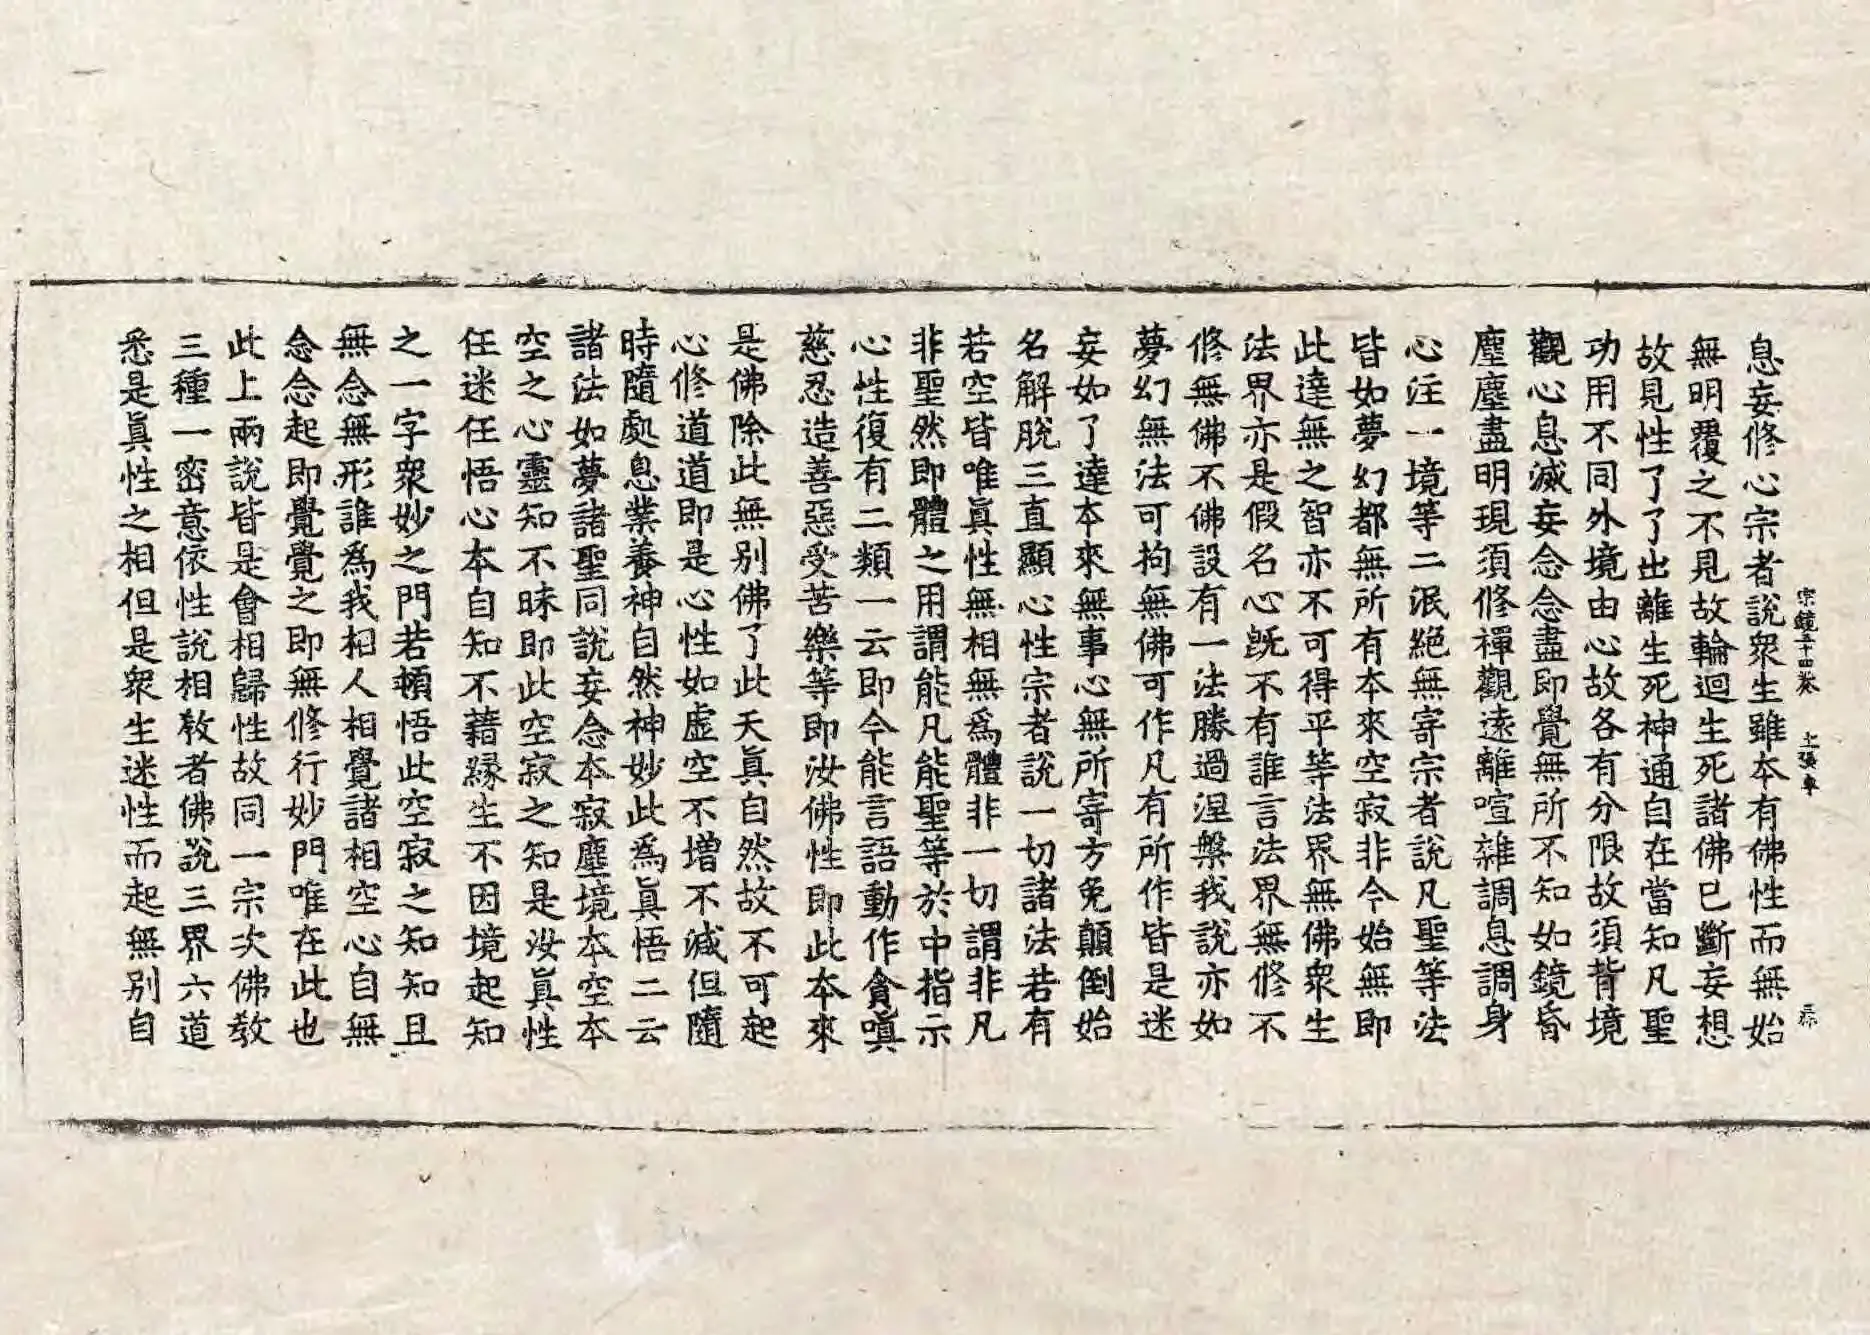 息妄修心宗者說衆生雖本有佛性而無始
無明覆之不見故輪迴生死諸佛已斷妄想
故見性了了出離生死神通自在當知凡聖
功用不同外境由心故各有分限故須背境
觀心息滅妄念念盡即覺無所不知如鏡昏
塵塵盡明現須修禪觀遠離喧雜調息調身
心注一境等二泯絕無寄宗者說凡聖等法
皆如夢幻都無所有本來空寂非今始無即
此達無之智亦不可得平等法界無佛衆生
法界亦是假名心旣不有誰言法界無修不
修無佛不佛設有一法勝過涅槃我說亦如
夢幻無法可拘無佛可作凡有所作皆是迷
妄如了達本來無事心無所寄方免顛倒始
名解脫三直顯心性宗者說一切諸法若有
若空皆唯眞性無相無爲體非一切謂非凡
非聖然即體之用謂能凡能聖等於中指示
心性復有二類一云即今能言語動作貪嗔
慈忍造善惡受苦樂等即汝佛性即此本來
是佛除此無別佛了此天眞自然故不可起
心修道道即是心性如虛空不增不減但隨
時隨處息業養神自然神妙此爲眞悟二云
諸法如夢諸聖同說妄念本寂塵境本空本
空之心靈知不昧即此空寂之知是汝眞性
任迷任悟心本自知不藉緣生不因境起知
之一字衆妙之門若頓悟此空寂之知知且
無念無形誰爲我相人相覺諸相空心自無
念念起即覺覺之即無修行妙門唯在此也
此上兩說皆是會相歸性故同一宗次佛敎
三種一密意依性說相敎者佛說三界六道
悉是眞性之相但是衆生迷性而起無別自